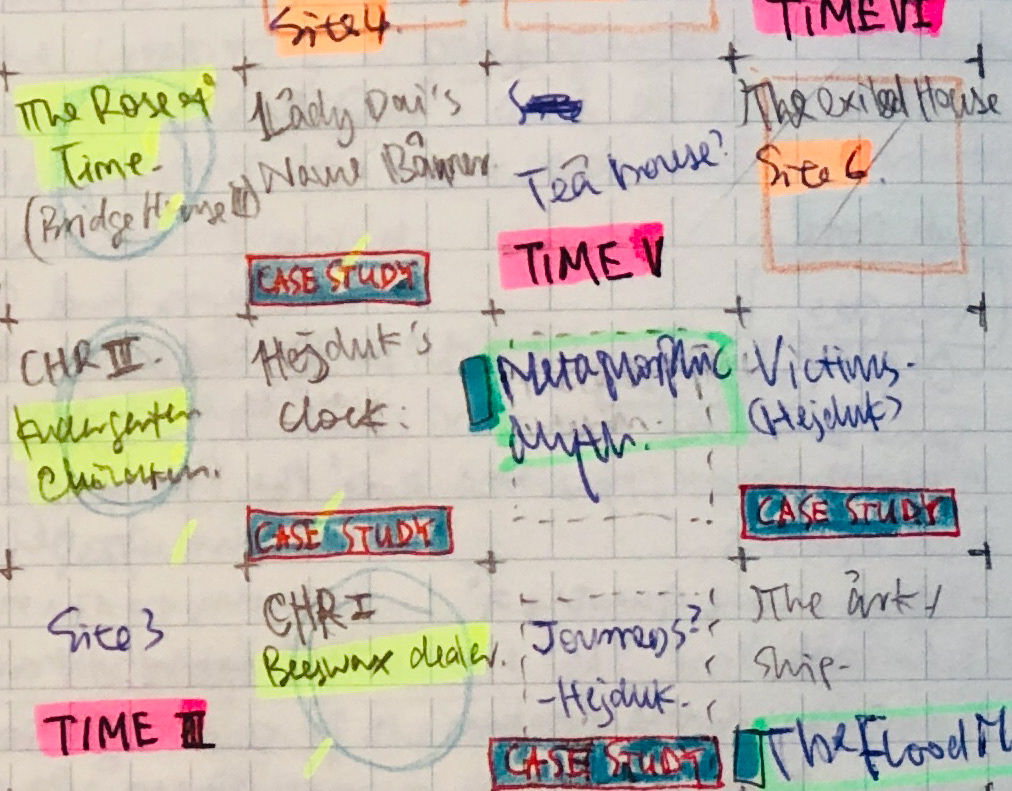 Site 4.
TIME VI
The Rose of
Time.
(Bridge House II)
Lady Dai's
Name Banner.
Tea house?
TIME V
The exiled House
Site 6.
CASE STUDY
CHR III.
kindergarten
Children.
Hejduk's
Clock:
CASE STUDY
Metamorphic
Myth.
Victims.
(Hejduk)
CASE STUDY
Site 3
TIME III
CHR I
Beeswax dealer.
Journeys?
-Hejduk.
CASE STUDY
The ark /
Ship-
The Flood M